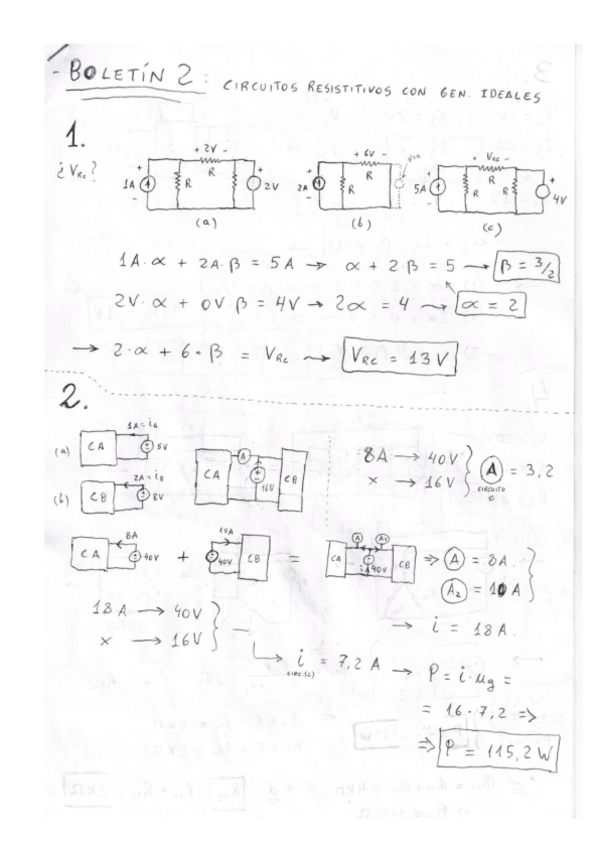 - BOLETÍN 2: CIRCUITOS RESISTITIVOS CON GEN. IDEALES
1.
¿ VRc ?
+ 2V -
R
1A
+
-
R
+
2V
-
(a)
+ 6V -
R
2A
R
(b)
+ VRc -
R
5A
+
-
R
R
+
4V
-
(c)
1A·α + 2A·β = 5A → α + 2·β = 5 → β = 3/2
2V·α + 0V·β = 4V → 2α = 4 → α = 2
→ 2·α + 6·β = VRc → VRc = 13V
2.
(a) CA 1A = iA 5V
(b) CB 2A = iB 8V
CA A 16V CB
8A → 40V
x → 16V
A = 3,2
CIRCUITO
C
CA 8A 40V + 10A 40V CB = CA A A2 i 40V CB ⇒ A = 8A.
A2 = 10 A
→ i = 18A.
18A → 40V
x → 16V
i = 7,2 A → P = i·ug =
CIRC.(C)
= 16·7,2 =>
⇒ P = 115,2 W